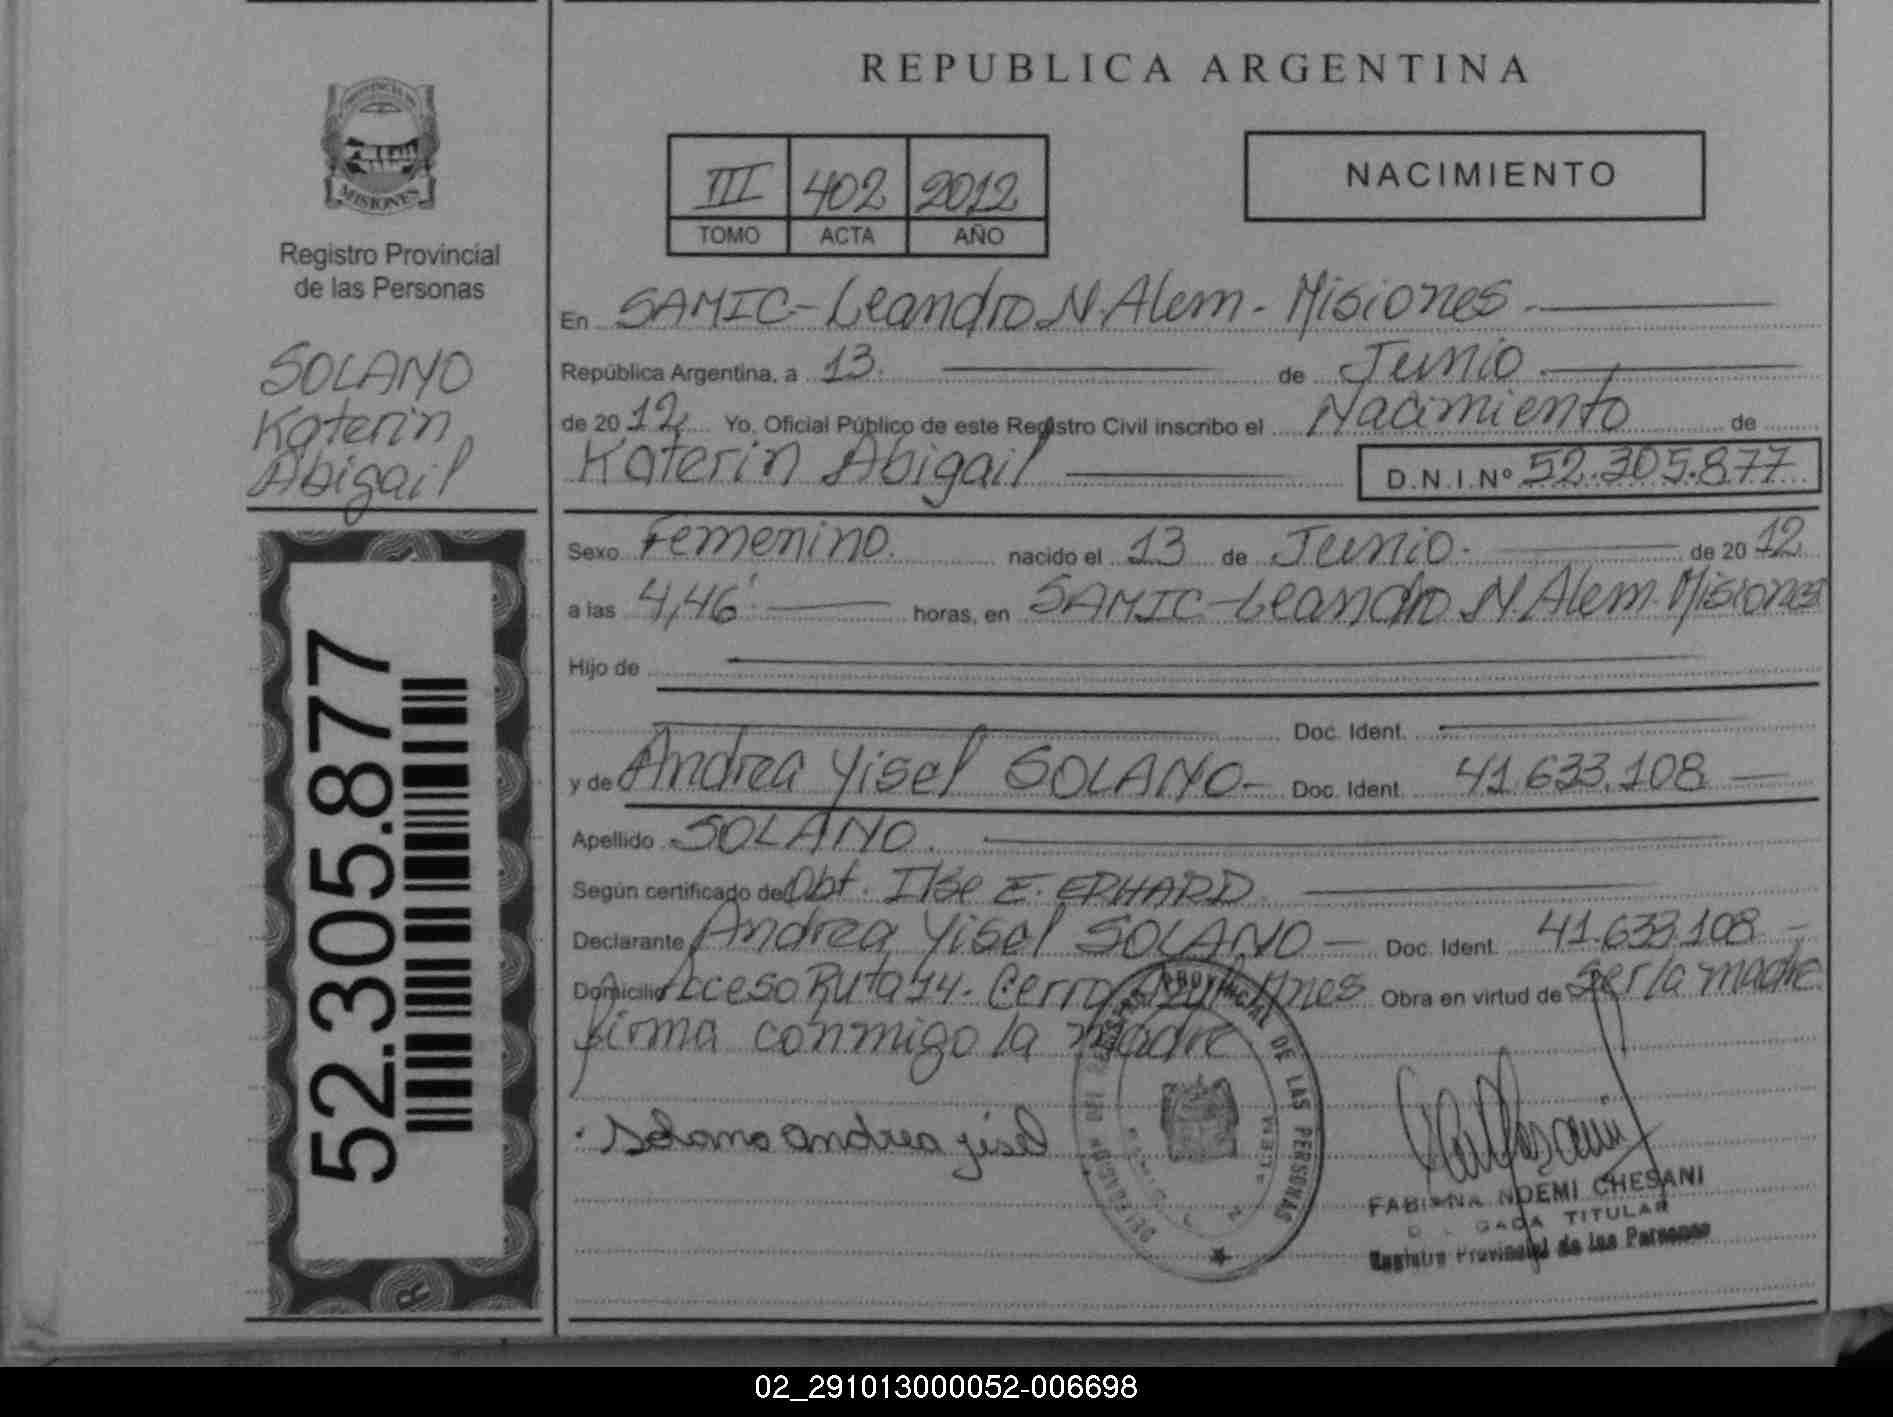 REPUBLICA ARGENTINA
MISIONES
Registro Provincial
de las Personas
SOLANO
Katerin
Abigail
52.305.877
III 402 2012
TOMO ACTA AÑO
NACIMIENTO
En SAMIC-Leandro N. Alem - Misiones
República Argentina, a 13. de Junio
de 2012 Yo, Oficial Público de este Registro Civil inscribo el Nacimiento de
Katerin Abigail D.N.I.Nº 52.305.877
Sexo Femenino. nacido el 13 de Junio. de 2012
a las 4,46' horas, en SAMIC-Leandro N. Alem. Misiones
Hijo de
Doc. Ident.
y de Andrea Yisel SOLANO - Doc. Ident. 41.633.108
Apellido SOLANO.
Según certificado de Obt. Ilse E. ERHARD.
Declarante Andrea Yisel SOLANO - Doc. Ident. 41.633.108 -
Domicilio Acceso Ruta 14. Cerro Azul Mnes Obra en virtud de ser la madre.
firma conmigo la madre
Solano andrea yisel
PROVINCIAL DE LAS PERSONAS
FABIANA NOEMI CHESANI
TITULAR
Registro Provincial de las Personas
02_291013000052-006698